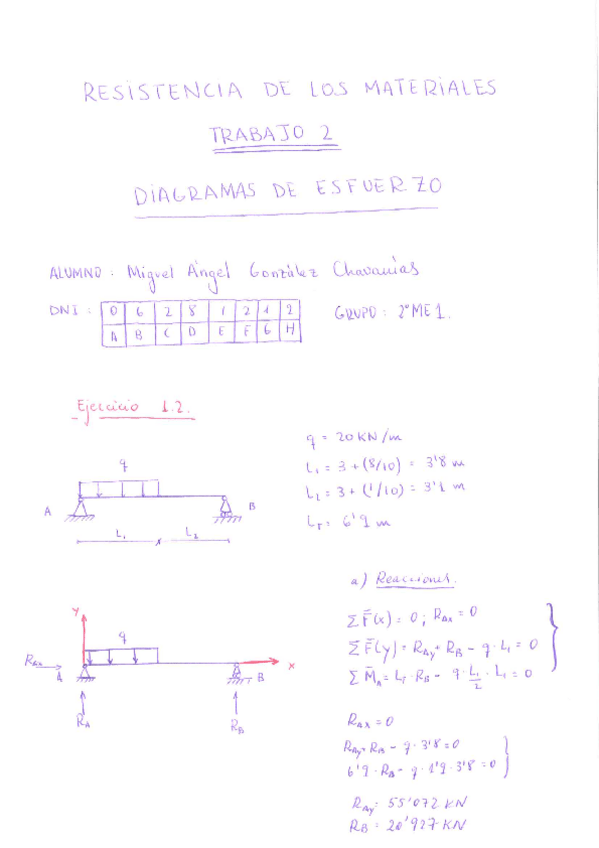 RESISTENCIA DE LOS MATERIALES
TRABAJO 2
DIAGRAMAS DE ESFUERZO
ALUMNO : Miguel Ángel González Chavanías
DNI : 0 6 2 8 1 2 1 2
A B C D E F G H
GRUPO : 2º ME 1.
Ejercicio 1.2.
q = 20 KN/m
L₁ = 3 + (8/10) = 3'8 m
L₂ = 3 + (1/10) = 3'1 m
L_T = 6'9 m
q
A B
L₁ L₂
a) Reacciones.
ΣF̄(x) = 0 ; R_Ax = 0
ΣF̄(y) = R_Ay + R_B - q · L₁ = 0
ΣM̄_A = L_T · R_B - q · L₁/2 · L₁ = 0
Y
q
R_Ax A B x
R_A R_B
R_Ax = 0
R_Ay + R_B - q · 3'8 = 0
6'9 · R_B - q · 1'9 · 3'8 = 0
R_Ay = 55'072 KN
R_B = 20'927 KN